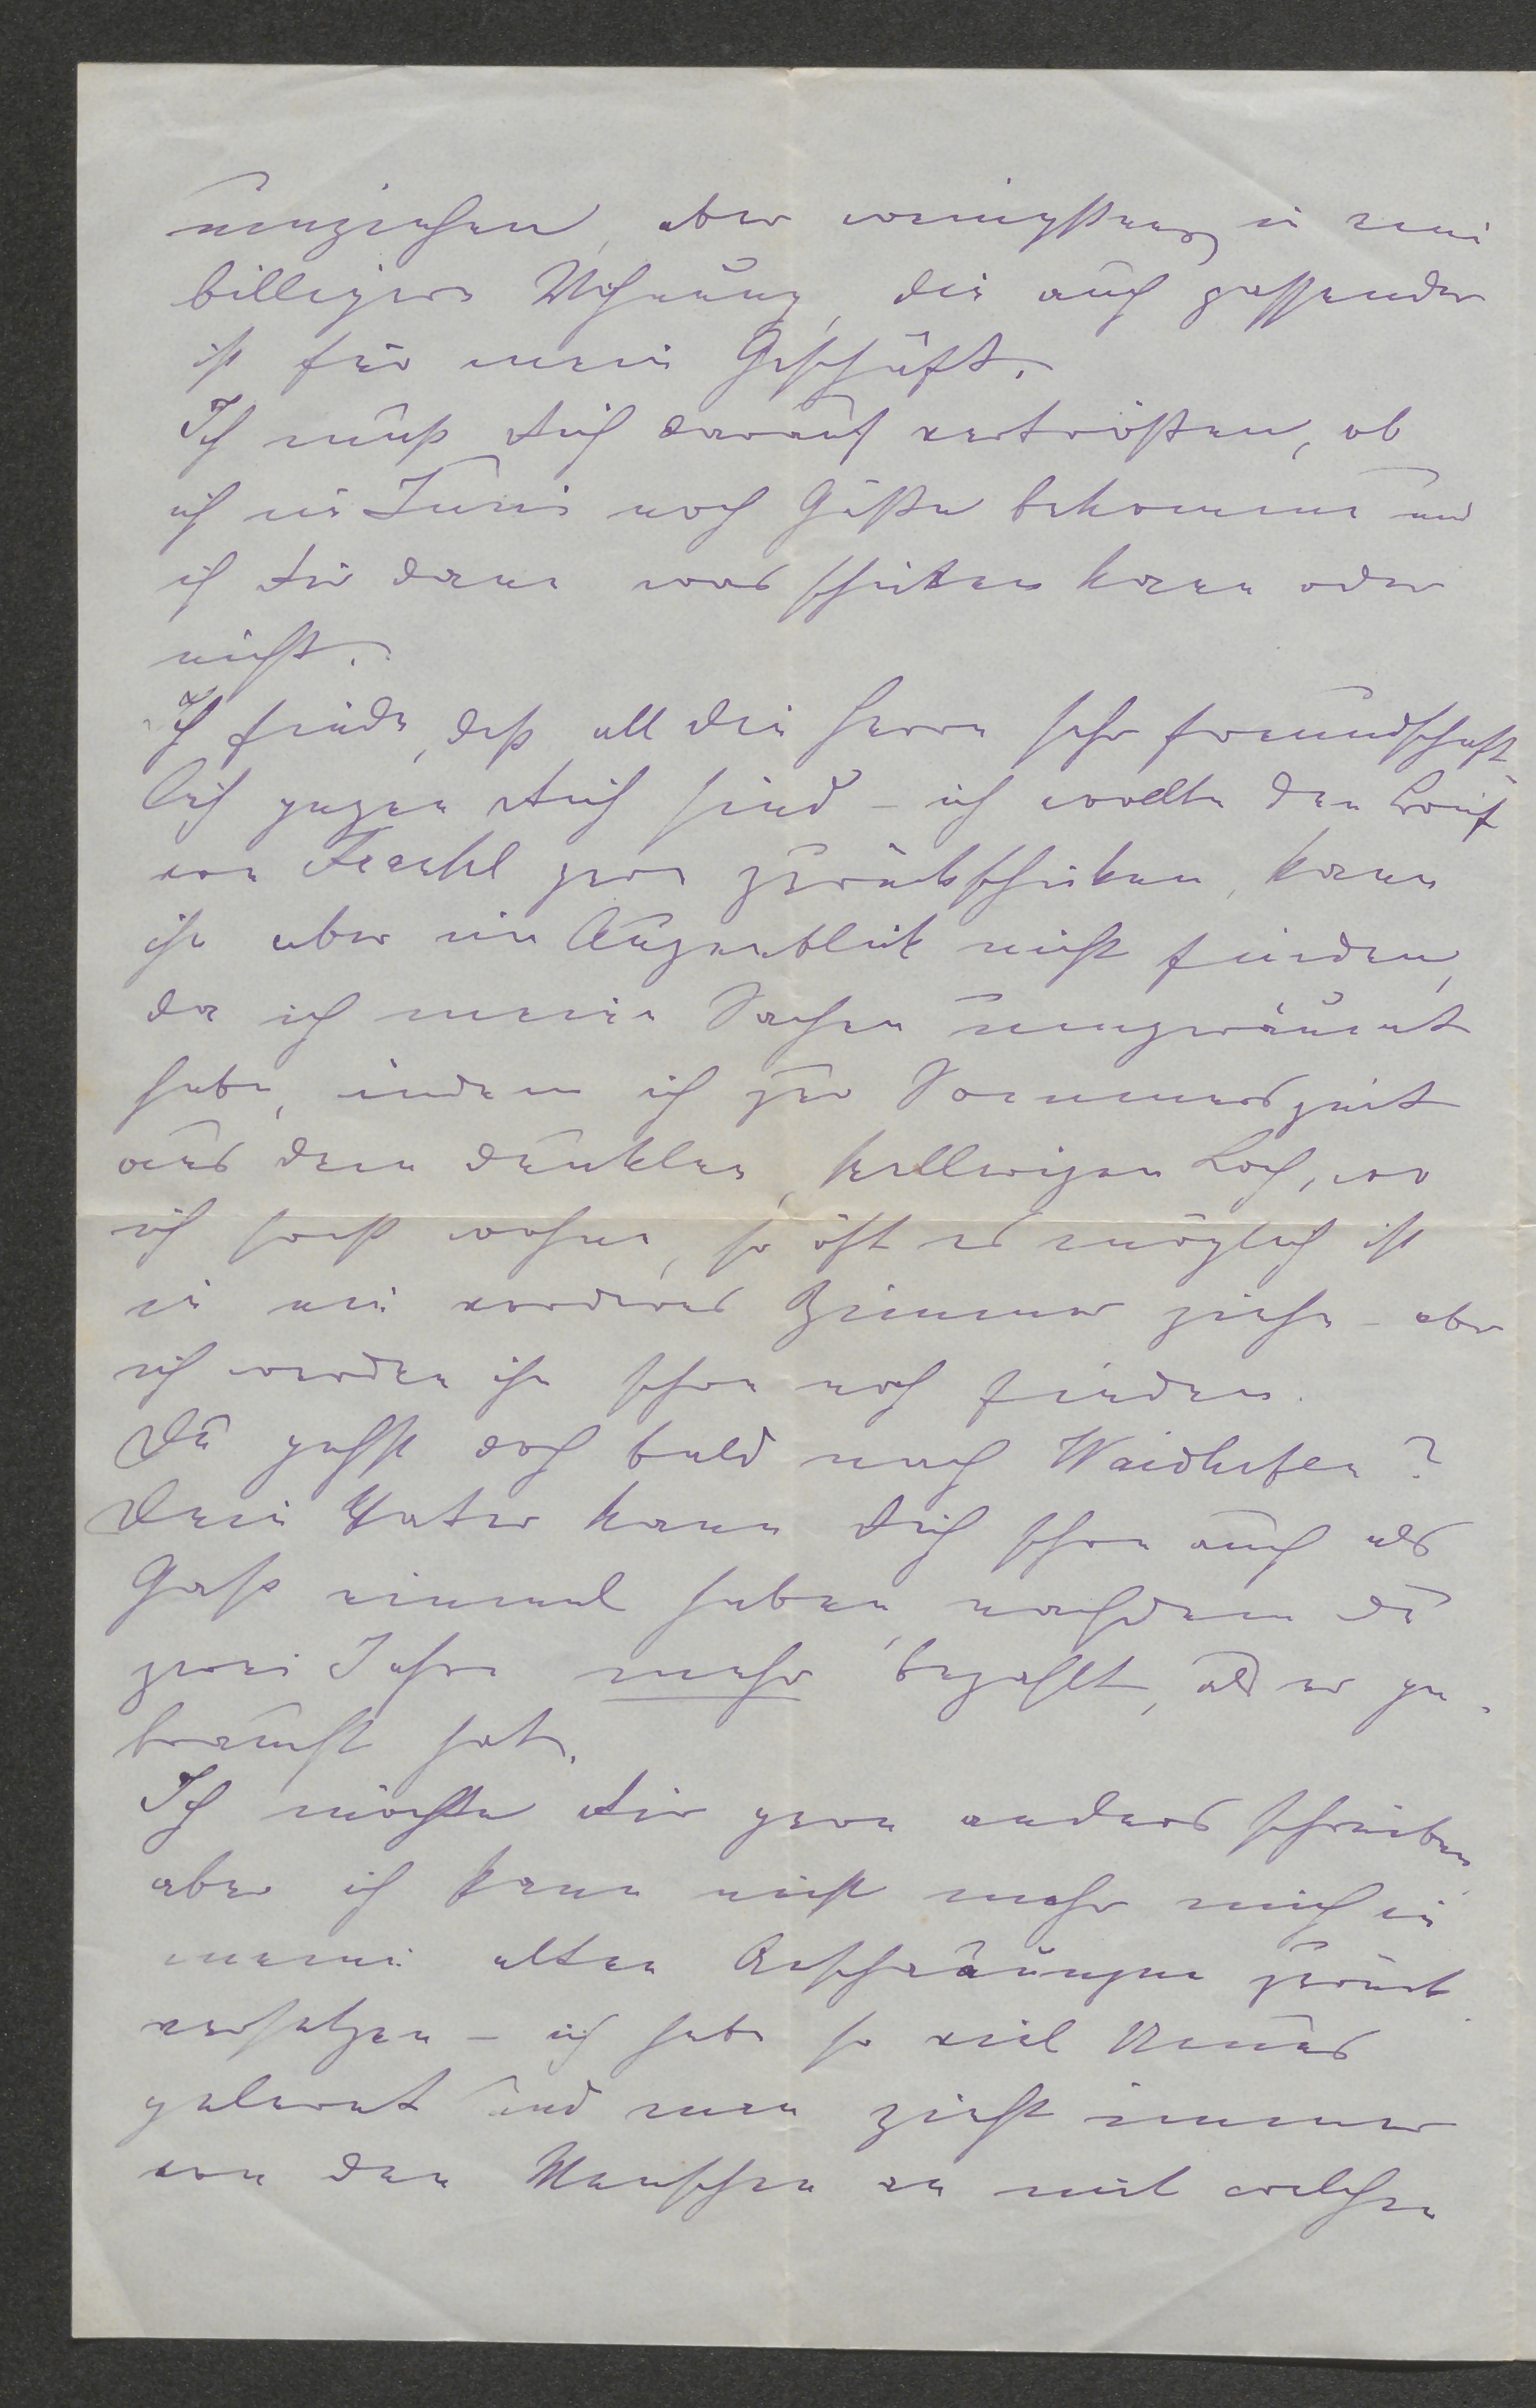 umziehen, aber wenigstens in eine
billigere Wohnung, die auch passender
ist für mein Geschäft.
Ich muß Dich darauf vertrösten, ob
ich im Juni noch Gäste bekomme und
ich Dir dann was schicken kann oder
nicht.
Ich finde, daß all die Herrn sehr freundschaft
lich gegen Dich sind – ich wollte den Brief
von gern zurückschicken, kann
ihn aber im Augenblick nicht finden,
da ich meine Sachen umgeräumt
habe, indem ich zur Sommerszeit
aus dem dunklen, Loch, wo
ich sonst wohne, so oft es möglich ist
in ein vorderes Zimmer ziehe – aber
ich werde ihn schon noch finden.
Du gehst doch bald nach Waidhofen?
Dein Vater kann Dich schon auch als
Gast einmal haben, nachdem Du
zwei Jahre mehr bezahlt, als er ge-
braucht hat.
Ich möchte Dir gern anders schreiben,
aber ich kann nicht mehr mich in
meine alten Anschauungen zurück
versetzen – ich habe so viel Neues
gelernt und man zieht immer
von den Menschen an mit welchen